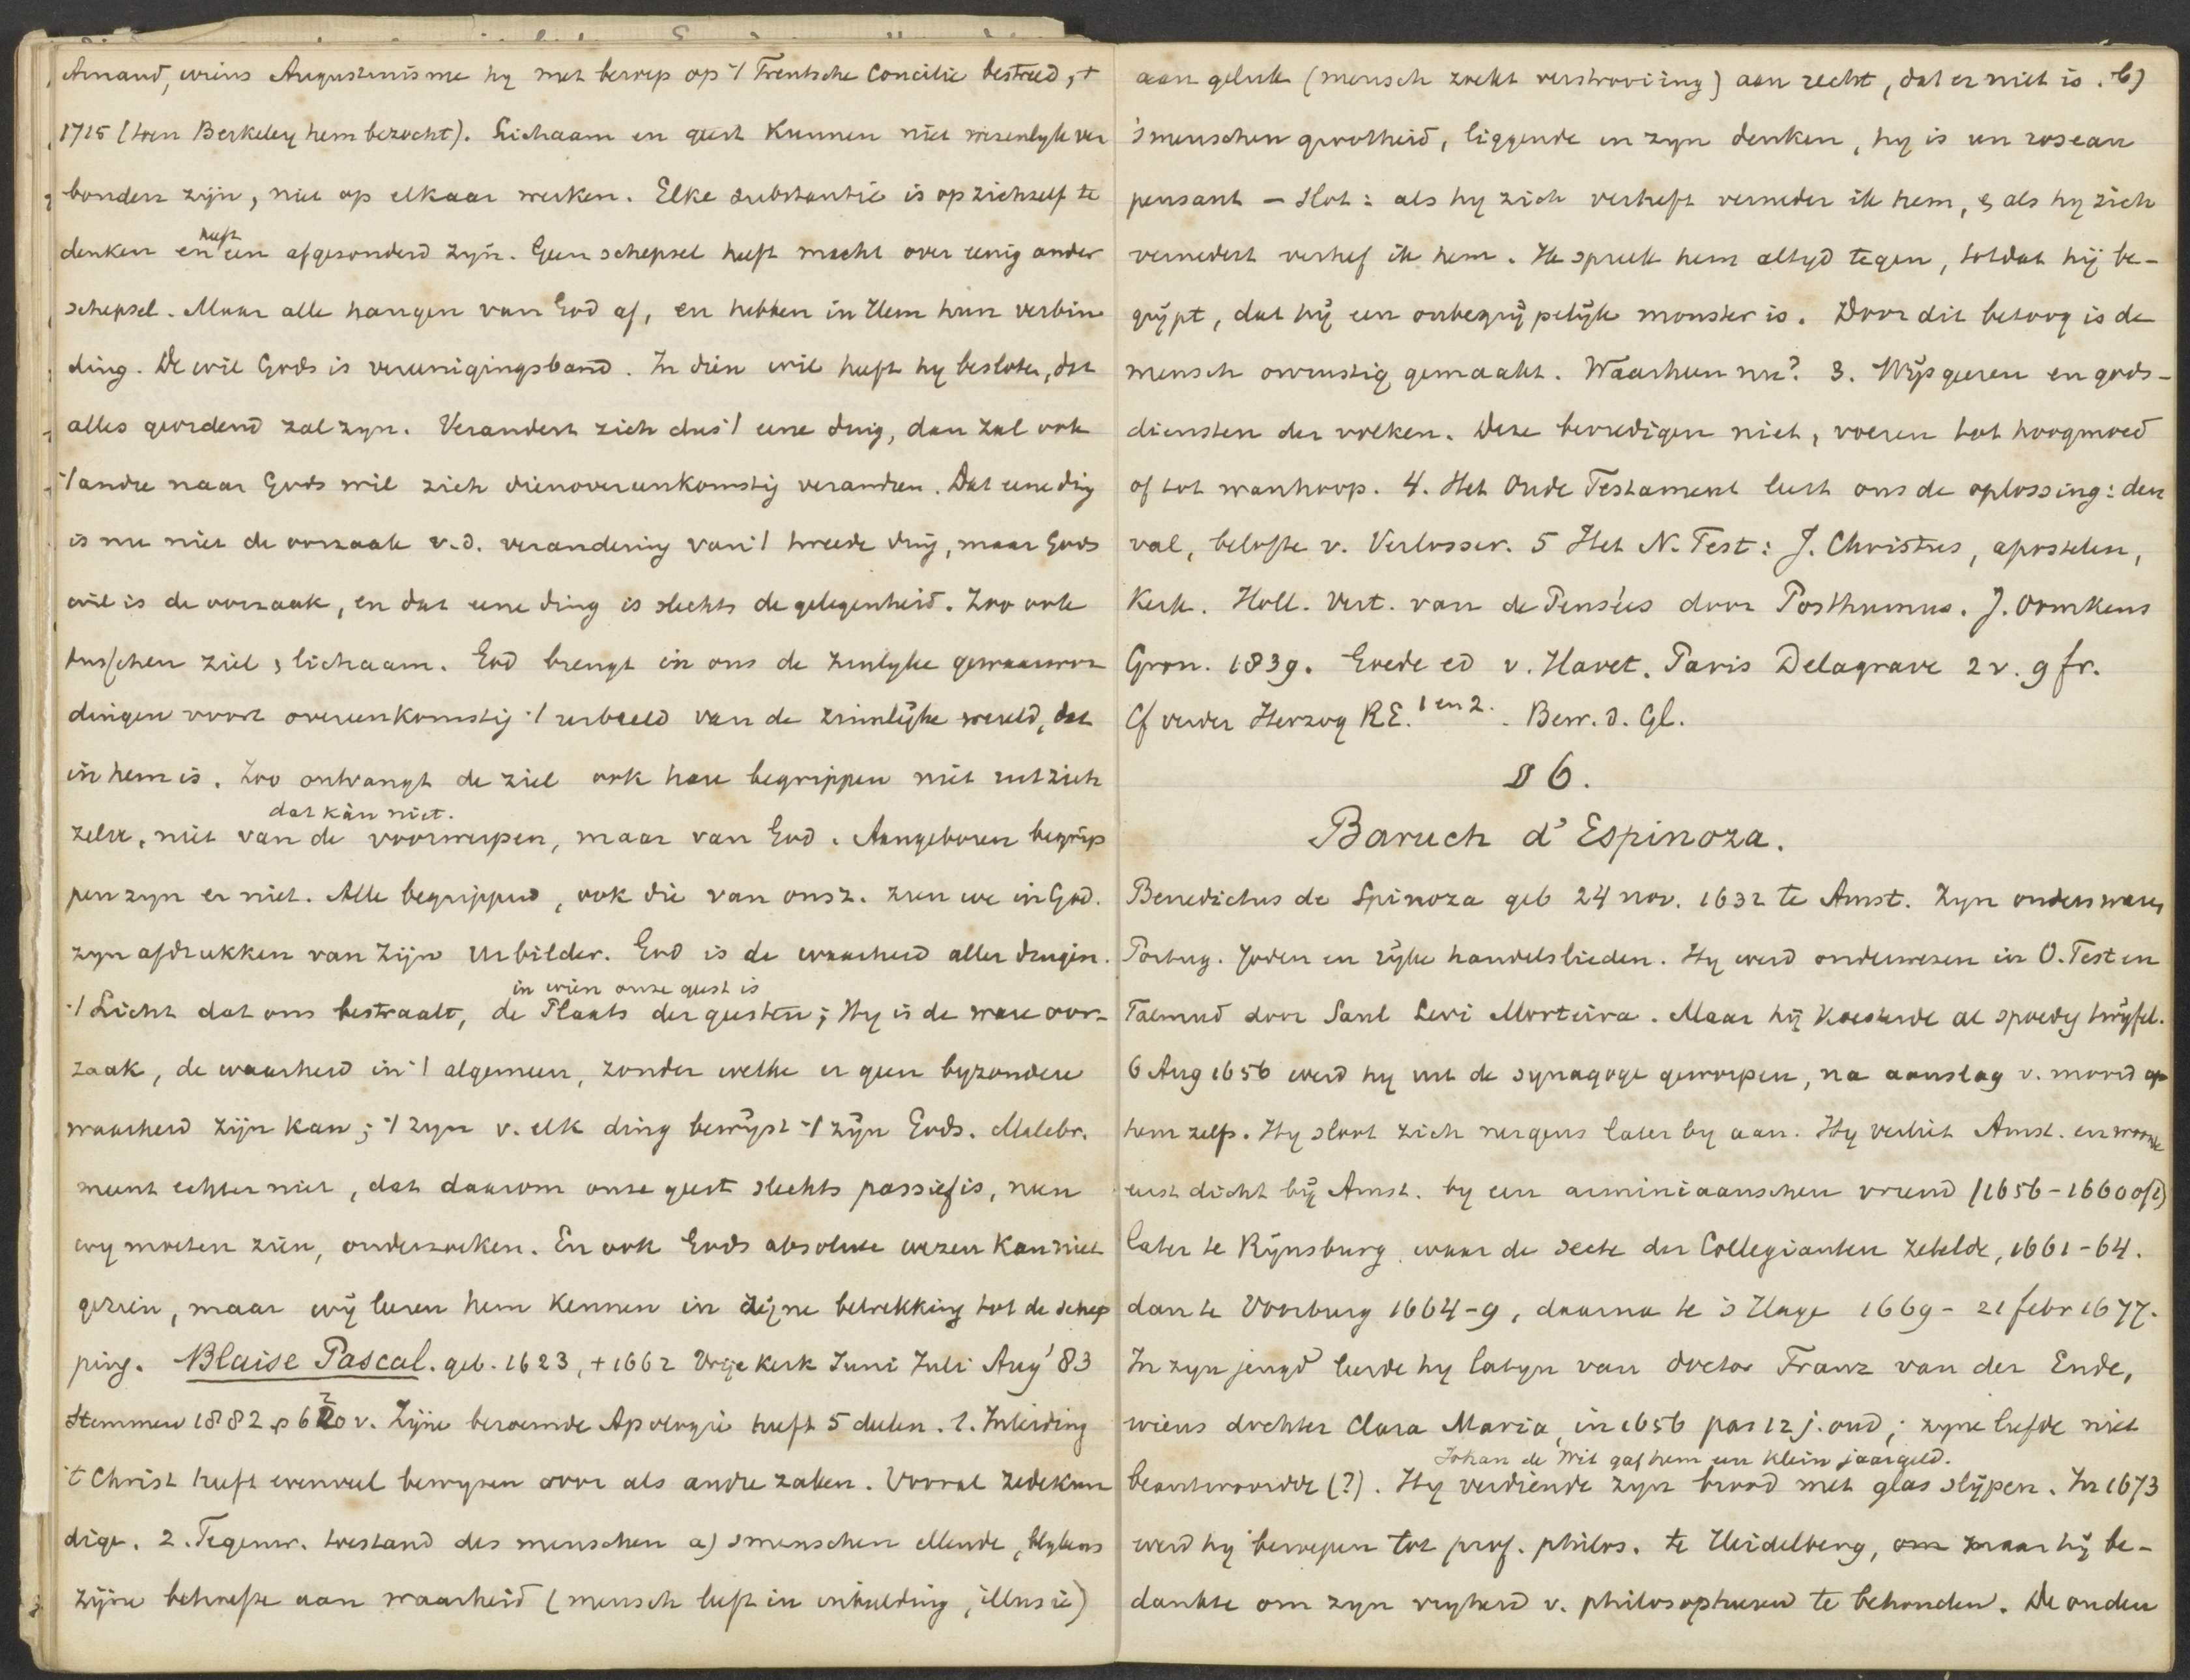 Arnaud, wiens Augustinisme hy met beroep op 't Trentsche Concilie bestreed, †
1715 (toen Berkeley hem bezocht). Lichaam en geest kunnen niet wezenlyk ver
bonden zijn, niet op elkaar werken. Elke substantie is op zichzelf te
denken en heeft een afgezonderd zijn. Geen schepsel heeft macht over eenig ander
schepsel. Maar alle hangen van God af, en hebben in Hem hun verbin
ding. De wil Gods is vereenigingsband. In dien wil heeft hy besloten, dat
alles geordend zal zyn. Verandert zich dus 't eene ding, dan zal ook
't andre naar Gods wil zich dienovereenkomstig veranderen. Dat eene ding
is nu niet de oorzaak v.d. verandering van 't tweede ding, maar Gods
wil is de oorzaak, en dat eene ding is slechts de gelegenheid. Zoo ook
tusschen ziel & lichaam. God brengt in ons de zinlyke gewaarwor
dingen voort overeenkomstig 't urbeeld van de zinnlijke wereld, dat
in hem is. Zoo ontvangt de ziel ook hare begrippen niet uit zich
dat kàn niet.
zelve, niet van de voorwerpen, maar van God. Aangeboren begrip
pen zyn er niet. Alle begrippen, ook die van onsz. zien we in God.
zyn afdrukken van Zijn Urbilder. God is de waarheid aller dingen.
in wien onze geest is
't Licht dat ons bestraalt, de Plaats der geesten; Hy is de ware oor-
zaak, de waarheid in 't algemeen, zonder welke er geen byzondere
waarheid zijn kan; 't zyn v. elk ding bewijst 't zijn Gods. Malebr.
meent echter niet, dat daarom onze geest slechts passief is, neen
wy moeten zien, onderzoeken. En ook Gods absolute wezen kan niet
gezien, maar wij leeren hem kennen in zijne betrekking tot de schep
ping. Blaise Pascal. geb. 1623, † 1662 Vrije Kerk Juni Juli Aug '83
Stemmen 1882 p 620 v. Zijne beroemde Apologie heeft 5 deelen. 1. Inleiding
't Christ heeft evenveel bewyzen voor als andre zaken. Vooral zedekun
dige. 2. Tegenw. toestand des menschen a) smenschen ellende, blykens
zijne behoefte aan waarheid (mensch leeft in inbeelding, illusie)
aan geluk (mensch zoekt verstrooiing) aan recht, dat er niet is. b)
'smenschen grootheid, liggende in zyn denken, hy is un roseau
pensant – Slot: als hy zich verheft verneder ik hem, & als hy zich
vernedert verhef ik hem. Ik spreek hem altyd tegen, totdat hij be-
grijpt, dat hij een onbegrijpelijk monster is. Door dit betoog is de
mensch onrustig gemaakt. Waarheen nu? 3. Wijsgeeren en gods-
diensten der volken. Deze bevredigen niet, voeren tot hoogmoed
of tot wanhoop. 4. Het Oude Testament leert ons de oplossing: den
val, belofte v. Verlosser. 5 Het N. Test: J. Christus, apostelen,
Kerk. Holl. Vert. van de Pensées door Posthumus. J. Oomkens
Gron. 1839. Goede ed v. Havet. Paris Delagrave 2 v. 9 fr.
Cf verder Herzog RE. 1 en 2. . Bew. d. Gl.
§ 6.
Baruch d'Espinoza.
Benedictus de Spinoza geb 24 nov. 1632 te Amst. Zyn ouders waren
Portug. Joden en rijke handelslieden. Hy werd onderwezen in O. Test en
Talmud door Saul Levi Morteira. Maar hij koesterde al spoedig twijfel.
6 Aug 1656 werd hy uit de synagoge geworpen, na aanslag v. moord op
hem zelf. Hy sloot zich nergens later by aan. Hy verliet Amst. en woonde
eerst dicht bij Amst. by een arminiaanschen vriend (1656-1660 of 1)
later te Rijnsburg waar de secte der Collegianten zetelde, 1661-64.
dan te Voorburg 1664-9, daarna te 's Hage 1669 - 21 febr 1677.
In zyn jeugd leerde hy latyn van doctor Franz van der Ende,
wiens dochter Clara Maria, in 1656 pas 12 j. oud, zyne liefde niet
Johan de Wit gaf hem een klein jaargeld.
beantwoordde (?). Hy verdiende zyn brood met glas slijpen. In 1673
werd hy beroepen tot prof. philos. te Heidelberg, om maar hij be-
dankte om zyn vryheid v. philosopheeren te behouden. De ouden